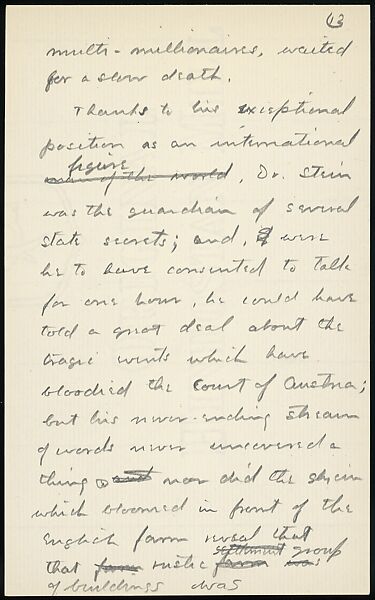 13
multi-millionaires, waited
for a slow death.
Thanks to his exceptional
position as an international
figure
man of the world Dr. Stein
was the guardian of several
state secrets; and, if were
he to have consented to talk
for one hour, he could have
told a great deal about the
tragic events which have
bloodied the Court of Austria;
but his never-ending stream
of words never uncovered a
thing nor did the
which bloomed in front of the
English farm reveal that
settlement group
that farm rustic farm was
of buildings was